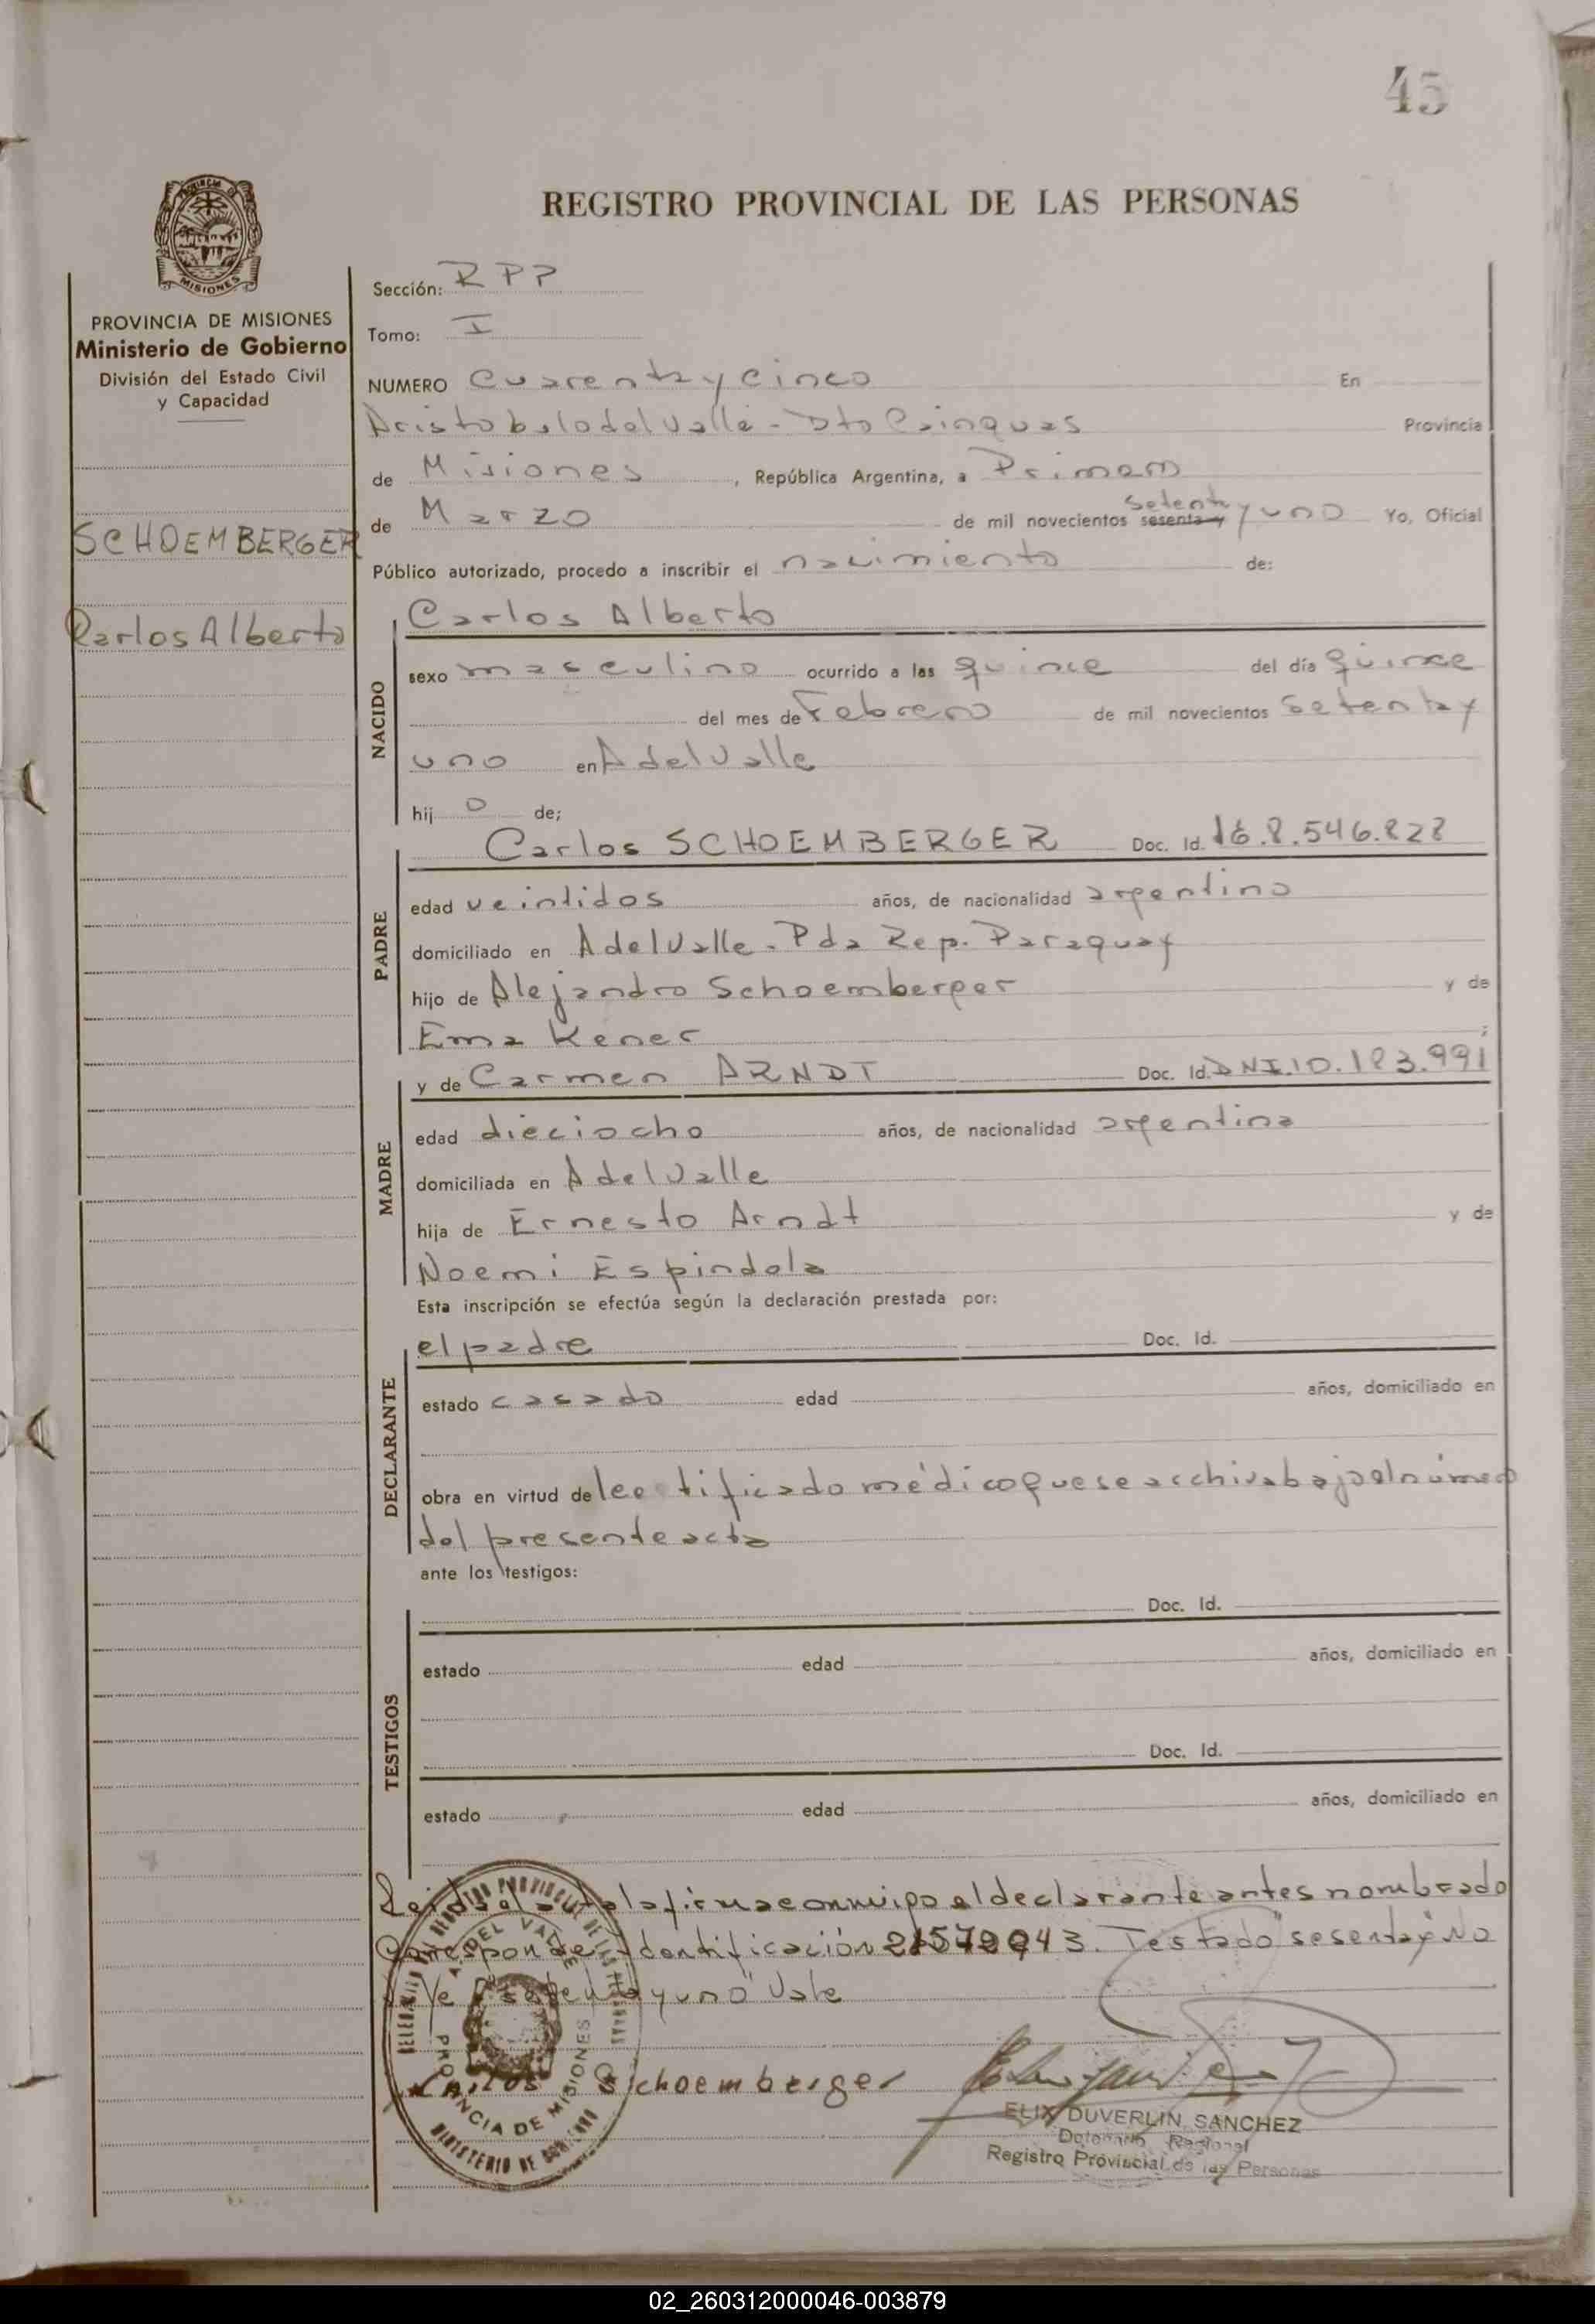 45
REGISTRO PROVINCIAL DE LAS PERSONAS
PROVINCIA DE MISIONES
Ministerio de Gobierno
División del Estado Civil
y Capacidad
SCHOEMBERGER
Carlos Alberto
Sección: RPP
Tomo: I
NUMERO Cuarenta y cinco En
Aristobulo del Valle - Dto Cainguas Provincia
de Misiones, República Argentina, a Primero
de Marzo de mil novecientos sesenta y setenta y uno Yo, Oficial
Público autorizado, procedo a inscribir el nacimiento de:
NACIDO
Carlos Alberto
sexo masculino ocurrido a las quince del día quince
del mes de Febrero de mil novecientos setenta y
uno en A del Valle
hij o de;
PADRE
Carlos SCHOEMBERGER Doc. Id.
edad veintidos años, de nacionalidad argentino
domiciliado en A del Valle - Pda Rep. Paraguay
hijo de Alejandro Schoemberger y de
Ema Kener ;
MADRE
y de Carmen ARNDT Doc. Id. DNI.10.183.991
edad dieciocho años, de nacionalidad argentina
domiciliada en A del Valle
hija de Ernesto Arndt y de
Noemi Espindola
Esta inscripción se efectúa según la declaración prestada por:
DECLARANTE
el padre Doc. Id.
estado casado edad años, domiciliado en
obra en virtud del certificado médico que se archiva bajo el número
del presente acta
ante los testigos:
TESTIGOS
Doc. Id.
estado edad años, domiciliado en
Doc. Id.
estado edad años, domiciliado en
Leida el acta la firma conmigo el declarante antes nombrado
Corresponde Identificación Testado "sesenta y" No
Vale "setenta y uno" Vale
Carlos Schoemberger
A. DEL VALLE
PROVINCIA DE MISIONES
MINISTERIO DE GOBIERNO
ELIX DUVERLIN SANCHEZ
Regional
Registro Provincial de las Personas
02_260312000046-003879